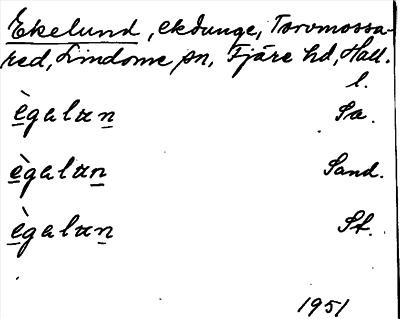 Ekelund, ekdunge, Torvmossa-
red, Lindome sn, Fjäre hd, Hall.
l.
ègalαn Sa.
ègalαn Sand.
ègalαn St.
1951